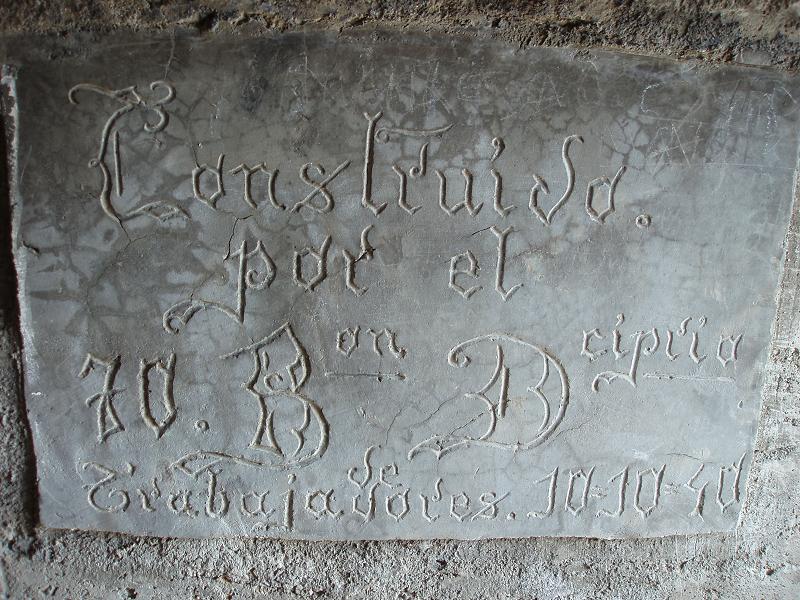 Construido.
por el
70. Bon Dcipria
de
Trabajadores. 10=10=40